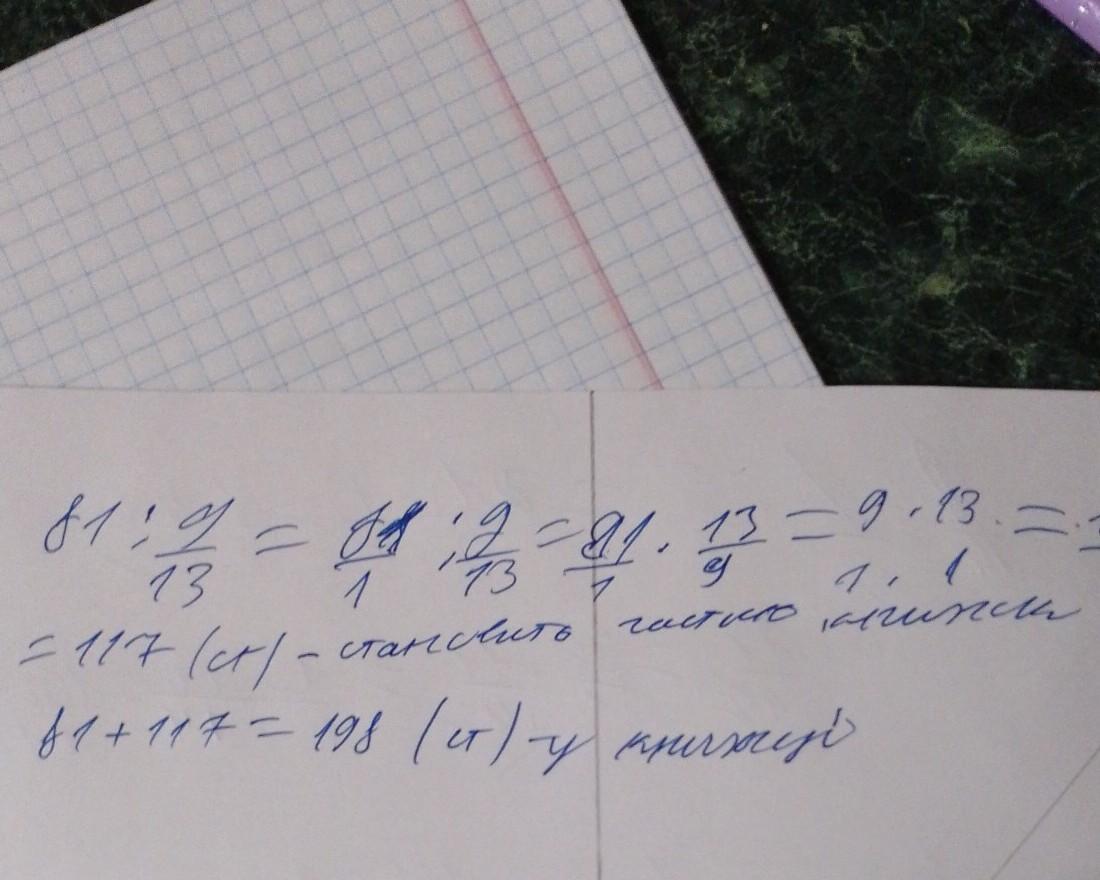 81 : 9/13 = 81/1 : 9/13 = 81/1 · 13/9 = 9 · 13 / 1 · 1 =
= 117 (ст) – становить частию книжки
81 + 117 = 198 (ст) – у книжці